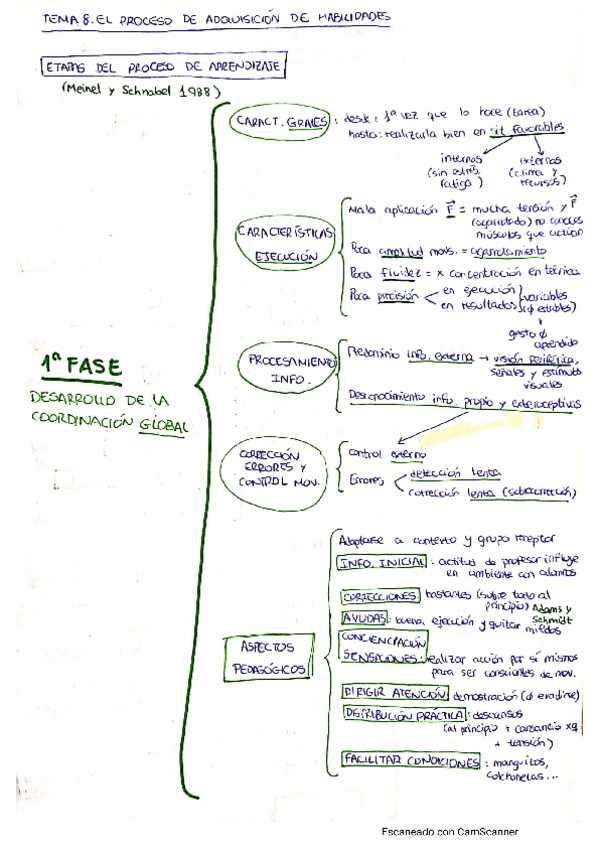 TEMA 8. EL PROCESO DE ADQUISICIÓN DE HABILIDADES
ETAPAS DEL PROCESO DE APRENDIZAJE
(Meinel y Schnabel 1988)
1ª FASE
DESARROLLO DE LA
COORDINACIÓN GLOBAL
CARACT. GRALES: desde: 1ª vez que lo hace (tarea)
hasta: realizarla bien en sit favorables
internas
(sin estrés,
fatiga)
externas
(clima y
recursos)
CARACTERÍSTICAS
EJECUCIÓN
Mala aplicación F = mucha tensión y F
(agarrotado) no conoces
músculos que actúan
Poca amplitud movs. = agarrotamiento
Poca fluidez = x concentración en técnica
Poca precisión
en ejecución
en resultados
(variables
(ϕ estables)
gesto ϕ
aprendido
PROCESAMIENTO
INFO.
Predominio info. externa → visión periférica,
señales y estímulos
visuales
Desconocimiento info. propio y exteroceptivas
CORRECCIÓN
ERRORES Y
CONTROL MOV.
Control externo
Errores
detección lenta
corrección lenta (sobrecorrección)
ASPECTOS
PEDAGÓGICOS
Adaptarse a contexto y grupo receptor
INFO. INICIAL: actitud de profesor influye
en ambiente con alumnos
CORRECCIONES: bastantes (sobre todo al
principio) Adams y
Schmidt
AYUDAS: buena ejecución y quitar miedos
CONCIENCIACIÓN
SENSACIONES: realizar acción por sí mismos
para ser conscientes de mov.
DIRIGIR ATENCIÓN: demostración
DISTRIBUCIÓN PRÁCTICA: descansos
(al principio + cansancio xq
+ tensión)
FACILITAR CONDICIONES: manguitos,
colchonetas...
Escaneado con CamScanner